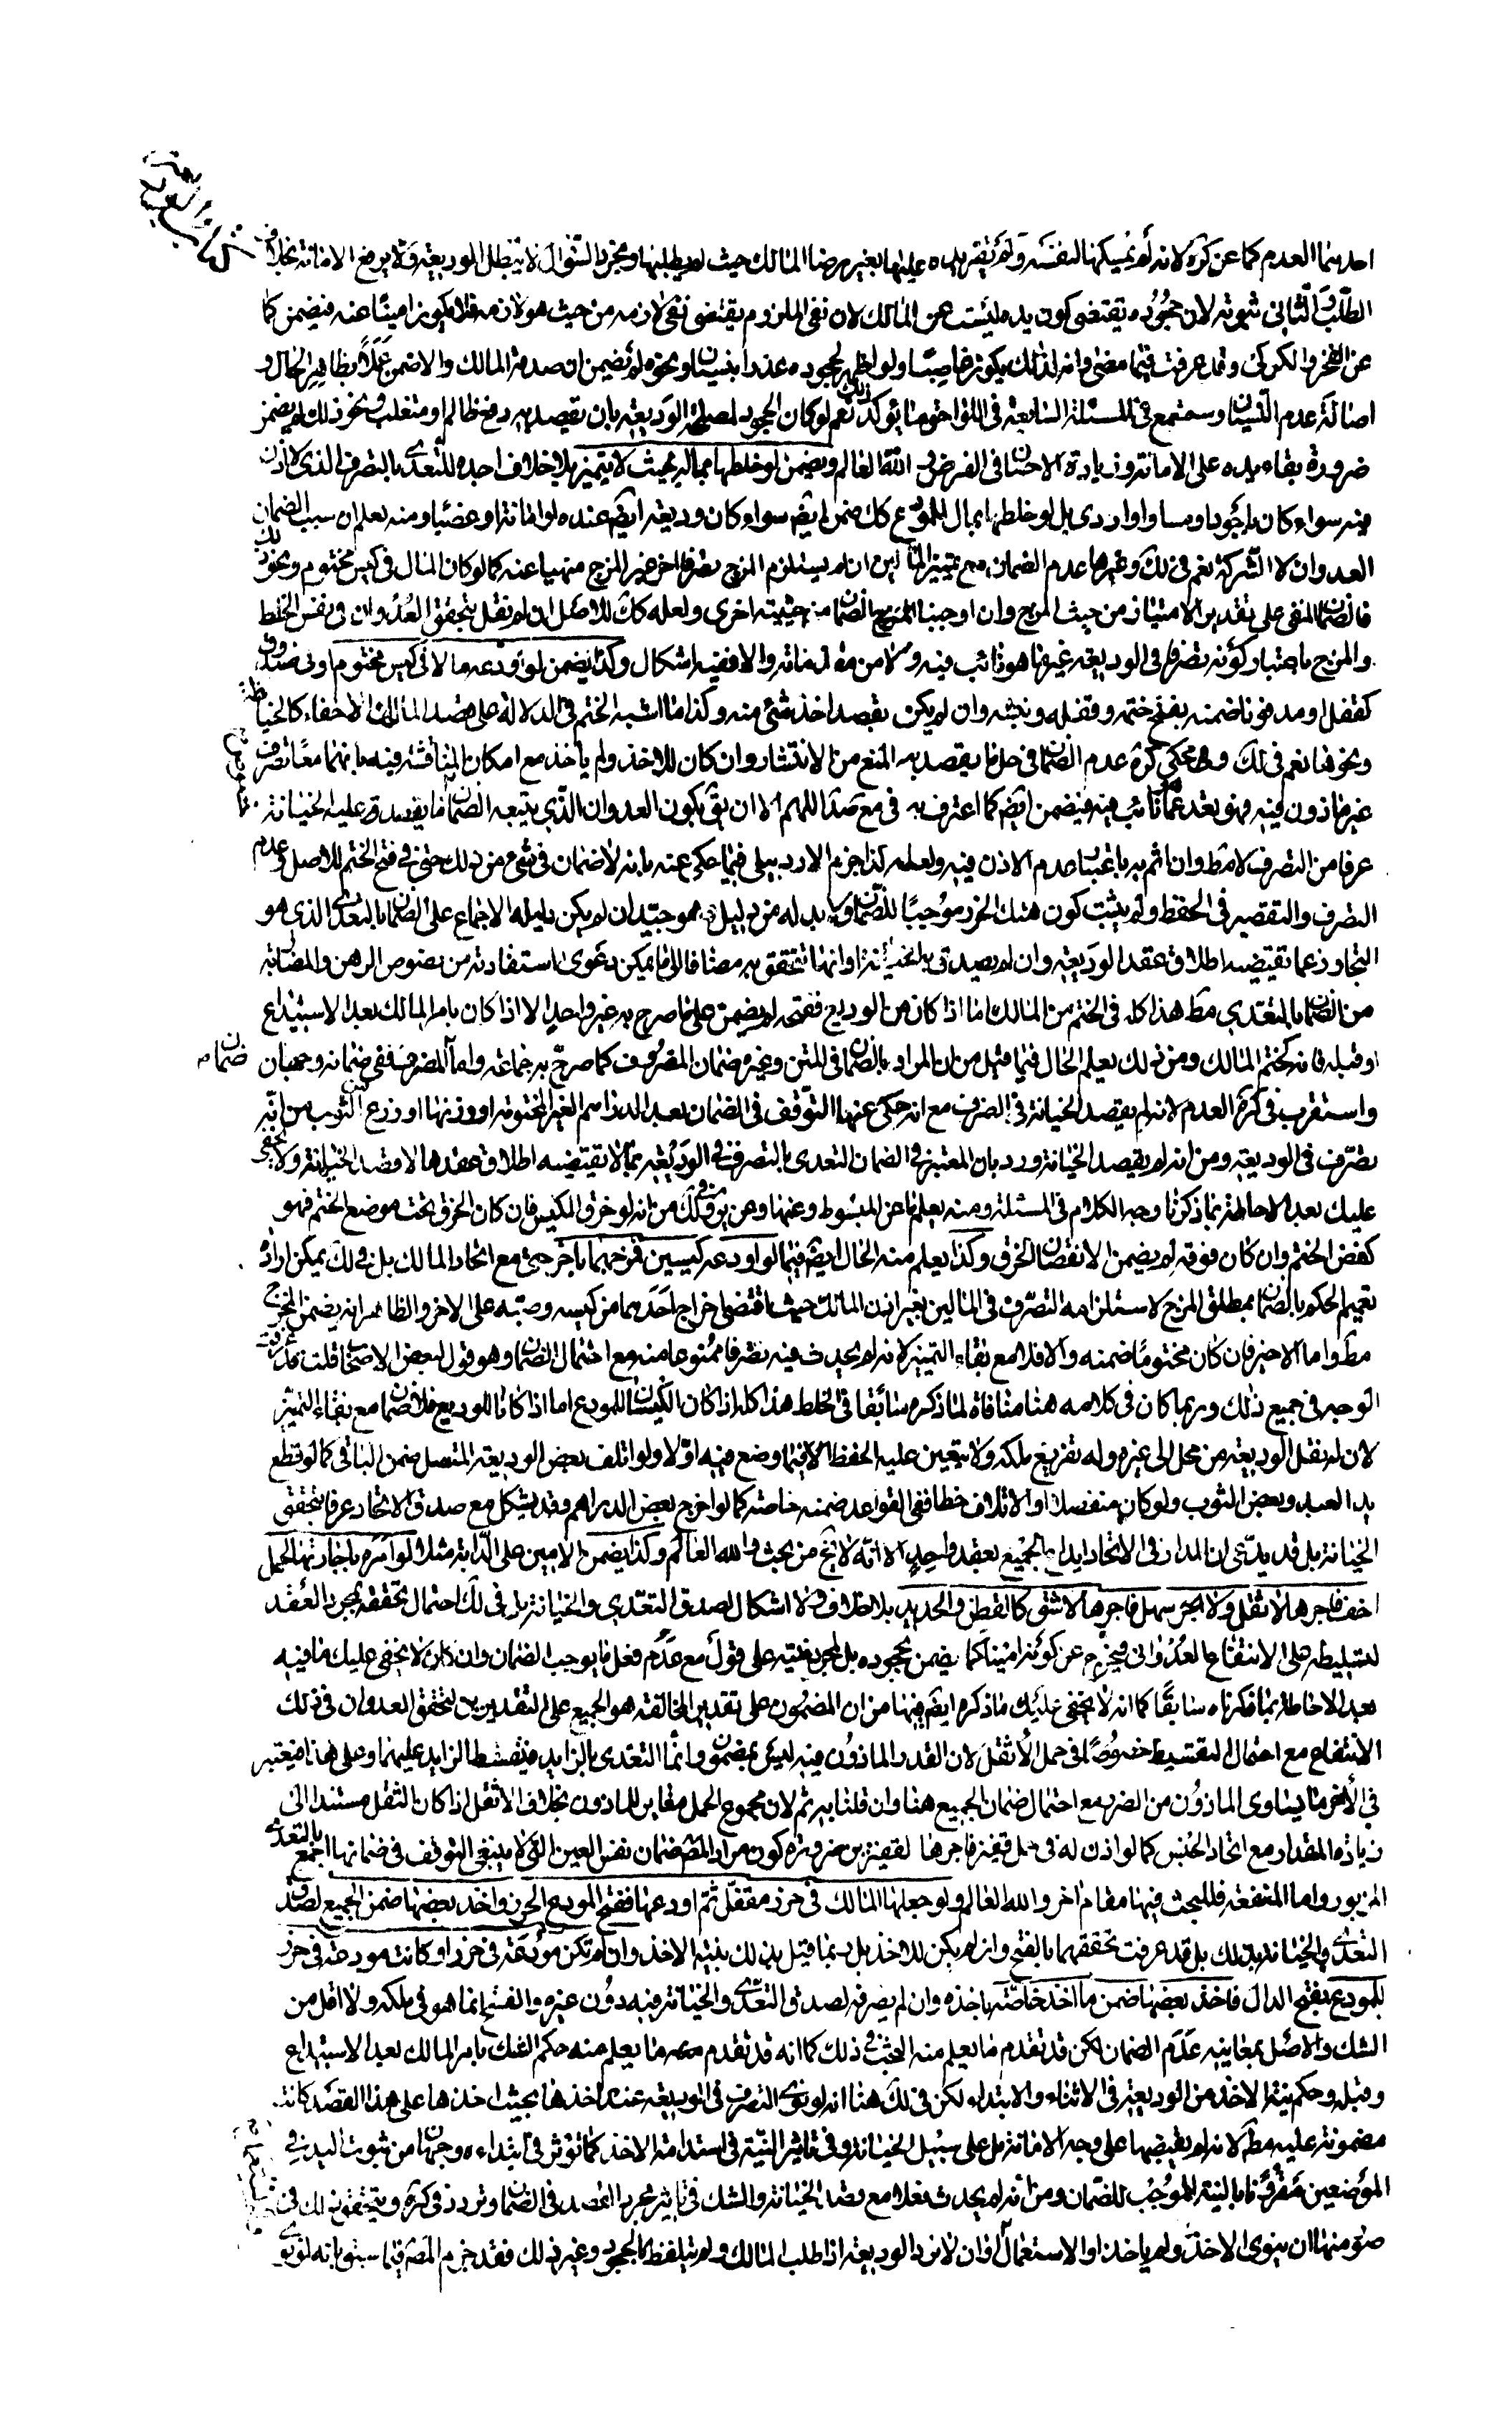 كتاب الوديعة
احدهما العدم كما عن كره لانه لم يمسكها لنفسه ولم يقر يده عليها بغير رضا المالك حيث لم يطلبها ومجرد السؤال لا يبطل الوديعة ولا يرفع الامانة بخلاف
الطلب والثاني ثبوته لان جحوده يقتضي كون يده ليست عن المالك لان نفي الملزوم يقتضي نفي لازمه من حيث هو لازمه فلا يكون امينا عنه فيضمن كما
عن الفخر والكركي وقد عرفت فيما مضى وانه لذلك يكون غاصبا ولو اظهر لجحوده عذرا بنسيان ونحوه لم يضمن ان صدقه المالك والا ضمن عملا بظاهر الحال و
اصالة عدم النسيان وستسمع في المسئلة السابعة في اللواحق ما يؤكد ذلك نعم لو كان الجحود لمصلحة الوديعة بان يقصد به دفع ظالم او متغلب ونحو ذلك لم يضمن
ضرورة بقاء يده على الامانة وزيادة الاحسان في الفرض والله العالم ويضمن لو خلطها بماله بحيث لا يتميز بلا خلاف اجده للتعدي بالتصرف الذي لا اذن
فيه سواء كان باجود او مساو او اردى بل لو خلطها بمال للمودع كك ضمن ايضم سواء كان وديعة ايضم عنده او امانة او غصبا ومنه يعلم ان سبب الضمان
العدوان لا الشركة نعم في لك وغيرها عدم الضمان مع تميز المالين ان لم يستلزم المزج تصرفا اخر غير المزج منهيا عنه كما لو كان المال في كيس مختوم ونحو ذلك
فالضمان المنفي على تقدير الامتياز من حيث المزج وان اوجبنا الضمان من حيثية اخرى ولعله كك للاصل ان لم نقل بتحقق العدوان في نفس الخلط
والمزج باعتبار كونه تصرفا في الوديعة غير ما هو نائب فيه ولا من مقدماته والا ففيه اشكال وكذا يضمن لو اودعه مالا في كيس مختوم او في صندوق
مقفل او مدفونا ضمنه بفتح ختمه وقفله ونبشه وان لم يكن بقصد اخذ شئ منه وكذا ما اشبه الختم في الدلالة على قصد المالك الاخفاء كالخياطة
ونحوها نعم في لك ومحكي كره عدم الضمان في حل ما يقصد به المنع من الانتشار وان كان للاخذ ولم ياخذ مع امكان المناقشة فيه بانهما معا تصرف
غير ماذون فيه فهو بعد عما نائب فيه فيضمن ايضم كما اعترف به في مع صد اللهم الا ان يق بكون العدوان الذي يتبعه الضمان ما يصدق عليه الخيانة
عرفا من التصرف لا مط وان اثم به باعتبار عدم الاذن فيه ولعله لذا جزم الاردبيلي فيما حكي عنه بانه لا ضمان في شئ من ذلك حتى في فتح الختم للاصل وعدم
التصرف والتقصير في الحفظ ولم يثبت كون هتك الحرز موجبا للضمان ولا بد له من دليل وهو جيد ان لم يكن دليله الاجماع على الضمان بالتعدي الذي هو
التجاوز عما يقتضيه اطلاق عقد الوديعة وان لم يصدق به الخيانة او انها تتحقق به مضافا الى ما يمكن دعوى استفادته من نصوص الرهن والمضاربة
من الضمان بالتعدي مط هذا كله في الختم من المالك اما اذا كان من الوديع ففتحه لم يضمن على ما صرح به غير واحد الا اذا كان بامر المالك بعد الاستيداع
او قبله فانه كختم المالك ومن ذلك يعلم الحال فيما قيل من ان المراد بالضمان في المتن وغيره ضمان المظروف كما صرح به جماعة واما الظرف ففي ضمانه وجهان
واستقرب في كره العدم لانه لم يقصد الخيانة في الظرف مع انه حكي عنها التوقف في الضمان بعد الدراهم الغير المختومة او وزنها او ذرع الثوب من انه
تصرف في الوديعة ومن انه لم يقصد الخيانة ورد بان المعتبر في الضمان التعدي بالتصرف في الوديعة بما لا يقتضيه اطلاق عقدها لا قصد الخيانة ولا يخفى
عليك بعد الاحاطة بما ذكرنا وجه الكلام في المسئلة ومنه يعلم ما عن المبسوط وعنها وعن من انه لو خرق الكيس فان كان الخرق تحت موضع الختم فهو
كفض الختم وان كان فوقه لم يضمن الا نقصان الخرق وكذا يعلم منه الحال ايضم فيما لو اودعه كيسين فمزجهما باخر حتى مع اتحاد المالك بل في لك يمكن ارادة
تعميم الحكم بالضمان بمطلق المزج لاستلزامه التصرف في المالين بغير اذن المالك حيث اقتضى اخراج احدهما من كيسه وصبه على الاخر والظاهر انه يضمن المخرج
مط واما الاخر فان كان مختوما ضمنه والا فلا مع بقاء التميز لانه لم يحدث فيه تصرفا ممنوعا منه مع احتمال الضمان وهو قول لبعض الاصحاب قلت قد عرفت
الوجه في جميع ذلك وربما كان في كلامه هنا منافاة لما ذكره سابقا في الخلط هذا كله اذا كان الكيسان للمودع اما اذا كانا للوديع فلا ضمان مع بقاء التميز
لان له نقل الوديعة من محل الى غيره وله تفريغ ملكه ولا يتعين عليه الحفظ الا فيما وضع فيه اولا ولو اتلف بعض الوديعة المتصل ضمن الباقي كما لو قطع
يد العبد وبعض الثوب ولو كان منفصلا او الاتلاف خطا ففي القواعد ضمنه خاصة كما لو اخرج بعض الدراهم وقد يشكل مع صدق الاتحاد عرفا بتحقق
الخيانة بل قد يدعى ان المدار في الاتحاد ايداع الجميع بعقد واحد الا انه لا يخ من بحث والله العالم وكذا يضمن الامين على الدابة مثلا لو امره باجارتها لحمل
اخف فاجرها لاثقل ولا لحمل سهل فاجرها لاشق كالقطن والحديد بلا خلاف ولا اشكال لصدق التعدي والخيانة بل في لك احتمال تحققه بمجرد العقد
لتسليطه على الانتفاع العدواني فيخرج عن كونه امينا كما يضمن بجحوده بل لمجرد نيته على قول مع عدم فعل ما يوجب الضمان وان كان لا يخفى عليك ما فيه
بعد الاحاطة بما ذكرناه سابقا كما انه لا يخفى عليك ما ذكره ايضم فيها من ان المضمون على تقدير المخالفة هو الجميع على التقديرين لتحقق العدوان في ذلك
الانتفاع مع احتمال التقسيط خصوصا في حمل الاثقل لان القدر الماذون فيه ليس بمضمون وانما التعدي بالزايد فيقسط الزايد عليهما وعلى هذا فيعتبر
في الاضر ما يساوي الماذون من الضرر مع احتمال ضمان الجميع هنا وان قلنا به ثم لان مجموع الحمل مغاير للماذون بخلاف الاثقل اذا كان الثقل مستندا الى
زيادة المقدار مع اتحاد الجنس كما لو اذن له في حمل قفيز فاجرها لقفيزين ضرورة كون مراد المصم ضمان نفس العين التي لا ينبغي التوقف في ضمانها اجمع بالتعدي
المزبور واما المنفعة فللبحث فيها مقام اخر والله العالم ولو جعلها المالك في حرز مقفل ثم اودعها ففتح المودع الحرز واخذ بعضها ضمن الجميع لصدق
التعدي والخيانة بذلك بل قد عرفت تحققهما بالفتح وان لم يكن للاخذ بل ربما قيل بذلك بنية الاخذ وان لم تكن مودعة في حرز او كانت مودعة في حرز
للمودع بفتح الدال فاخذ بعضها ضمن ما اخذ خاصة باخذه وان لم يصرفه لصدق التعدي والخيانة فيه دون غيره والفتح انما هو في ملكه ولا اقل من
الشك والاصل بمعانيه عدم الضمان لكن قد تقدم ما يعلم منه البحث في ذلك كما انه قد تقدم ما يعلم منه حكم الفك بامر المالك بعد الاستيداع
وقبله وحكم نية الاخذ من الوديعة في الاثناء والابتداء لكن في لك هنا انه لو نوى التصرف في الوديعة عند اخذها بحيث اخذها على هذا القصد كانت
مضمونة عليه مط لانه لم يقبضها على وجه الامانة بل على سبيل الخيانة وفي تاثير النية في استدامة الاخذ كما تؤثر في ابتداءه وجهان من ثبوت اليد في
الموضعين مقرونا بالنية الموجب للضمان ومن انه لم يحدث فعلا مع قصد الخيانة والشك في تاثير مجرد القصد في الضمان وتردد في كره ويتحقق ذلك في
صور منها ان ينوي الاخذ ولم ياخذ او الاستعمال او ان لا يرد الوديعة اذا طلب المالك ولم يتلفظ بالجحود وغير ذلك فقد جزم المصم فيما سبق بانه لو نوى